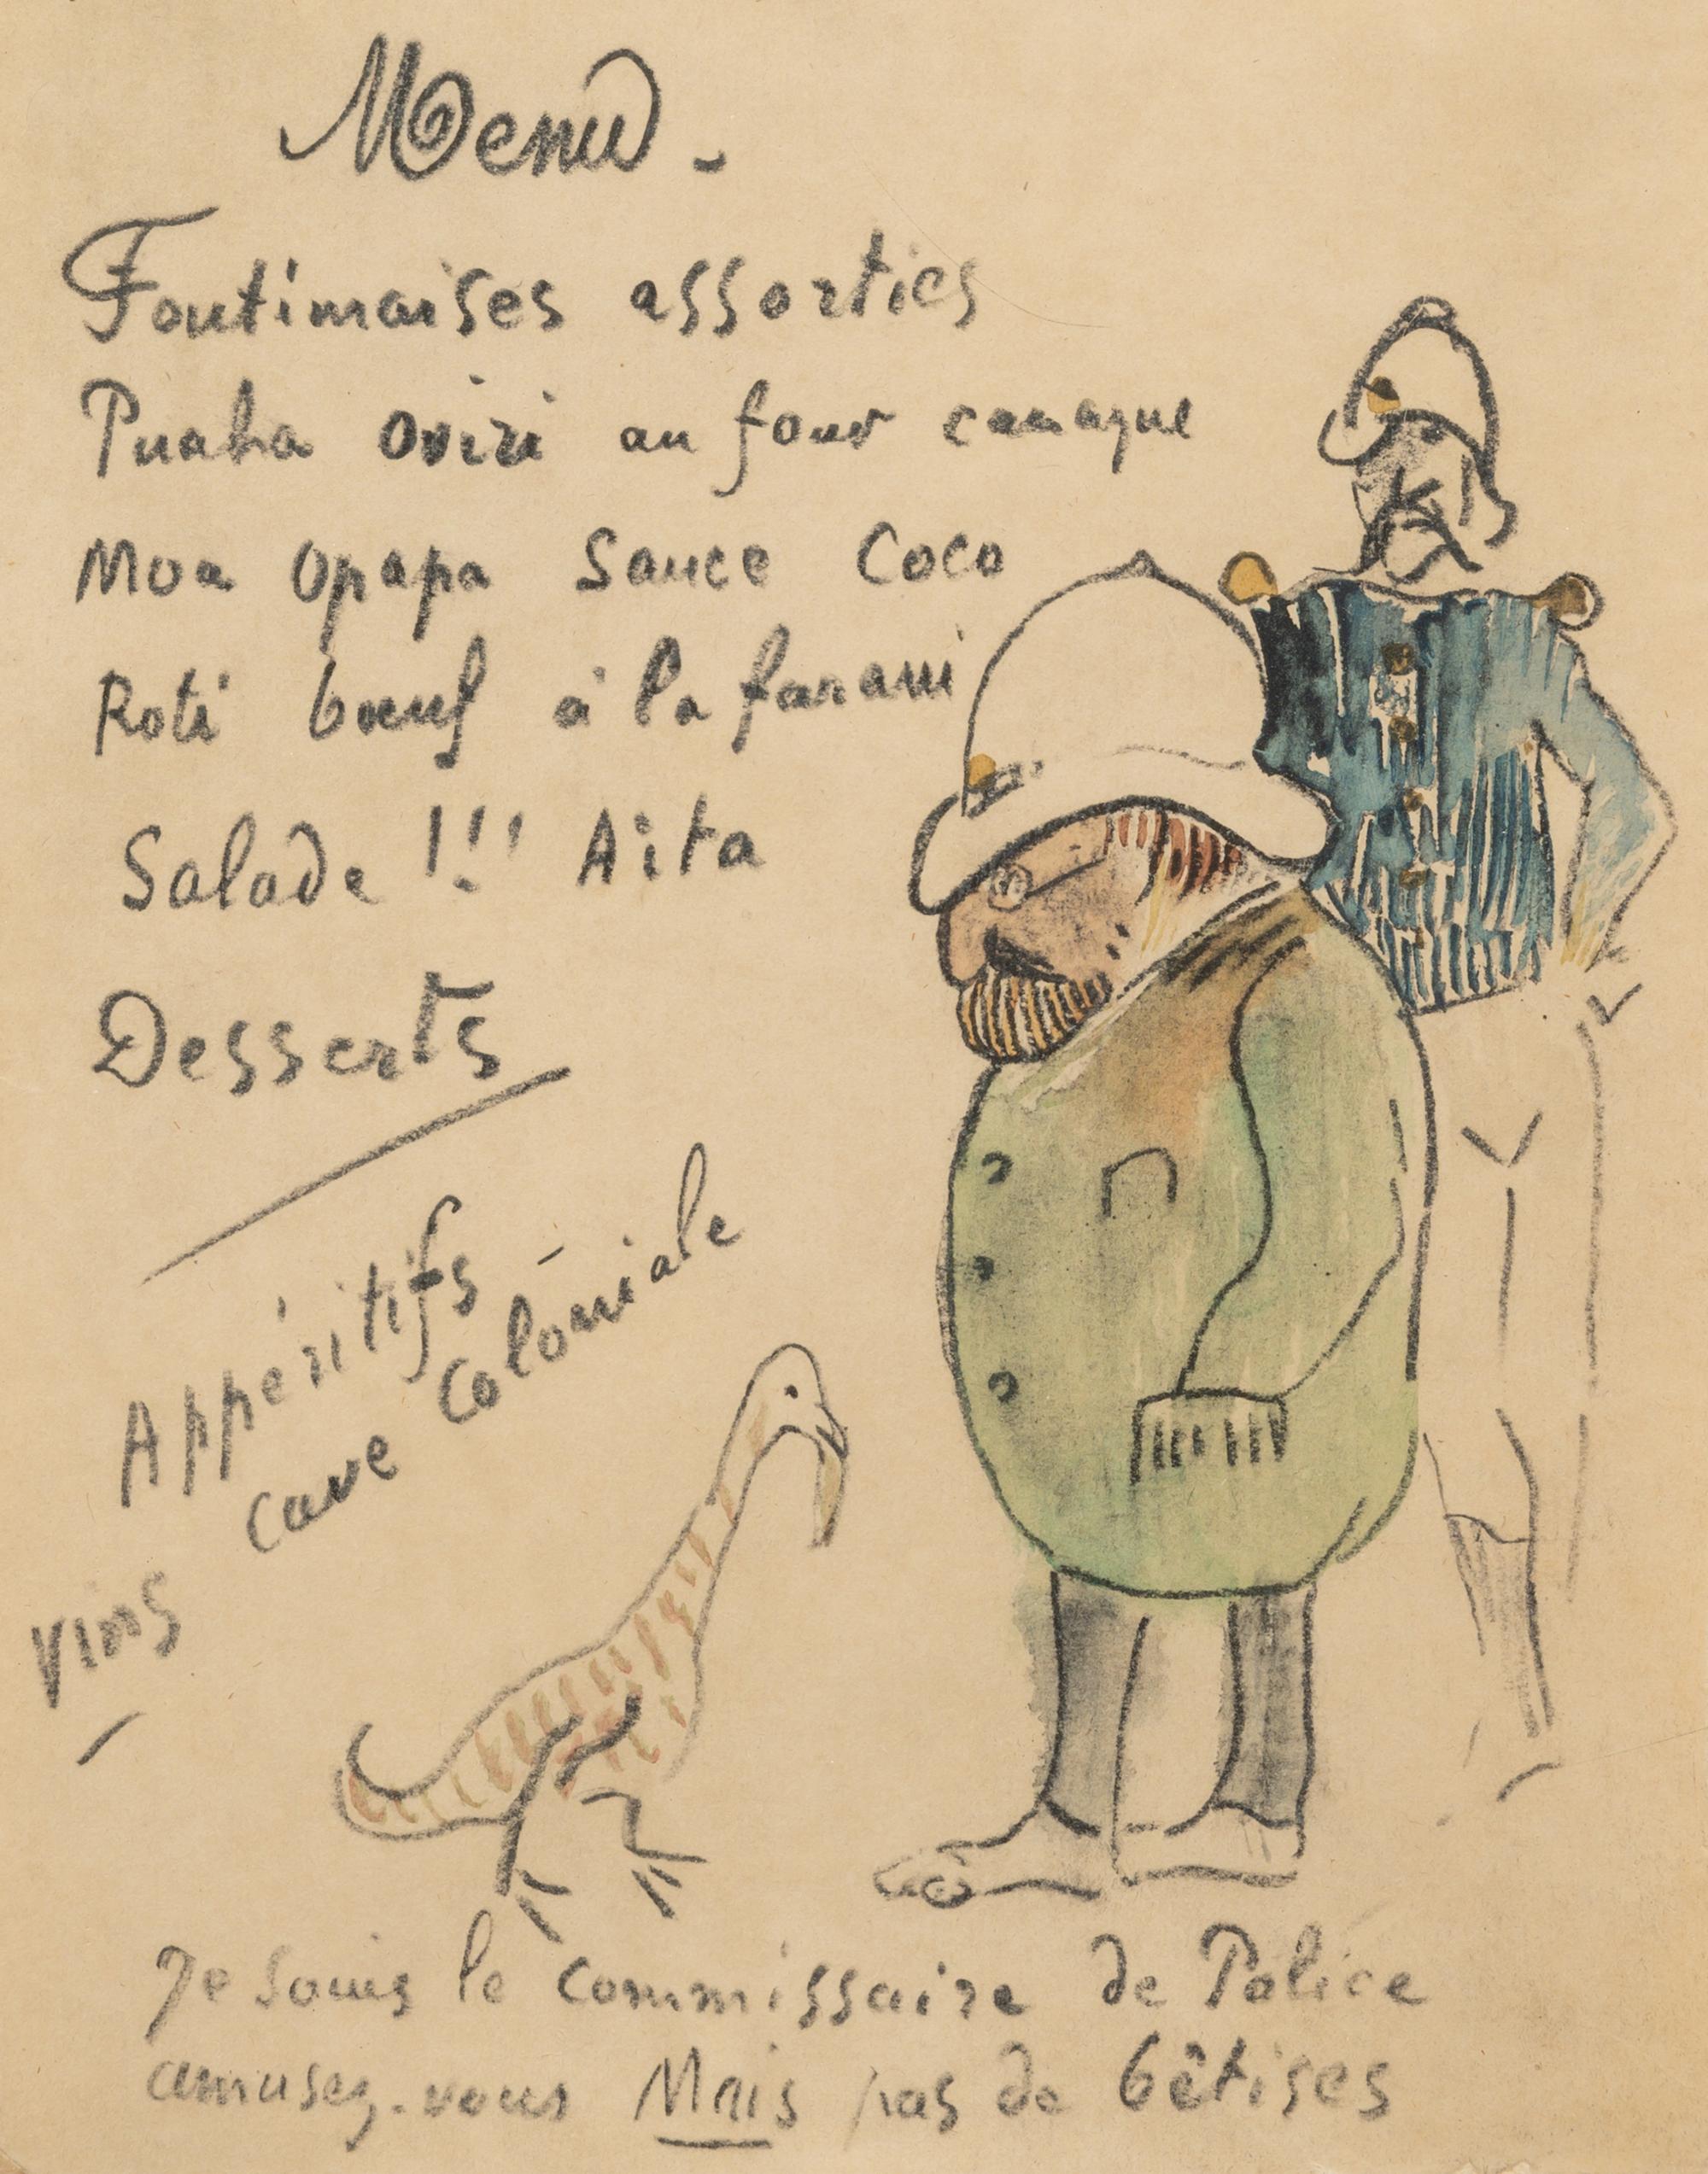 Menu -
Foutimaises assorties
Puaha oviri au four canaque
Moa Opapa Sauce Coco
Roti boeuf à la farani
Salade !!! Aita
Desserts
Appéritifs -
cave Coloniale
vins -
Je souis le commissaire de Police
amusez-vous Mais pas de bêtises